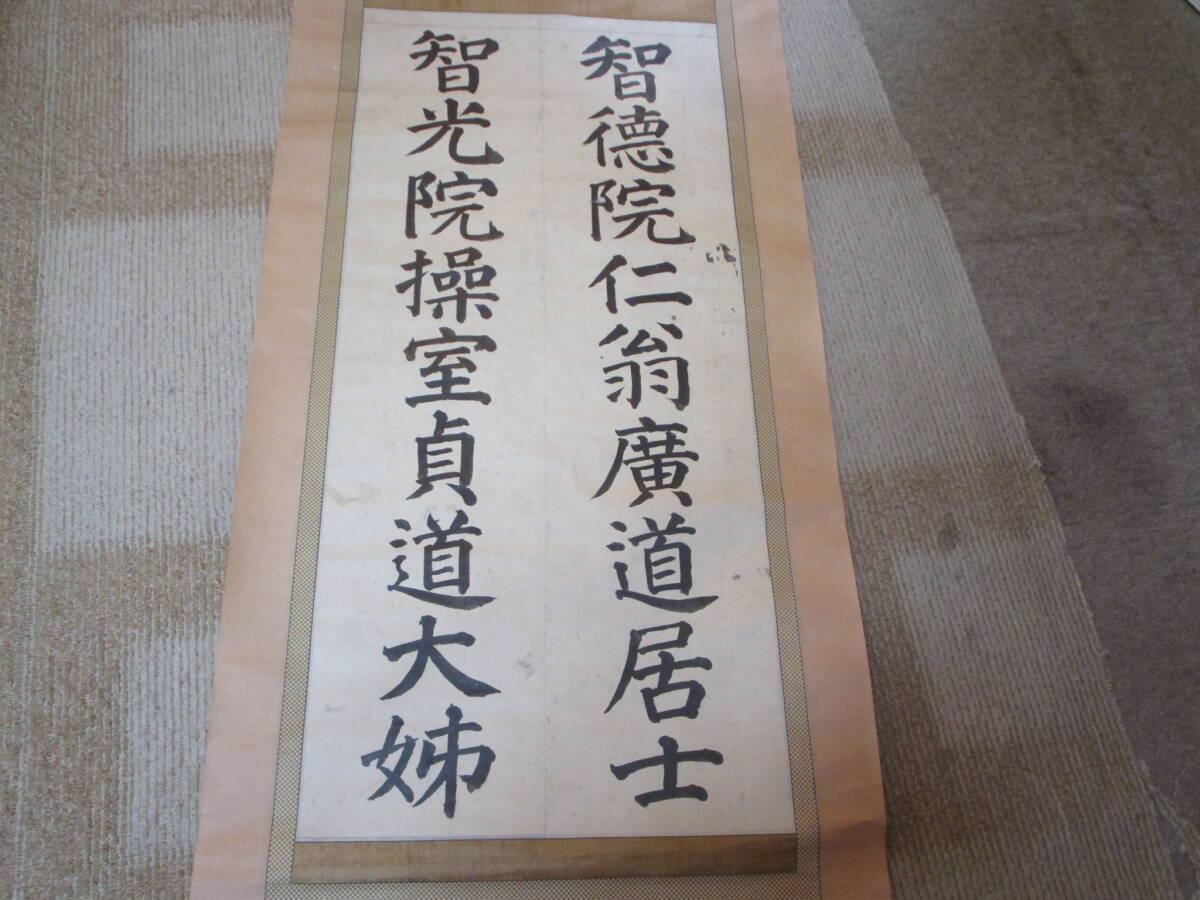 智德院仁翁廣道居士
智光院操室貞道大姊